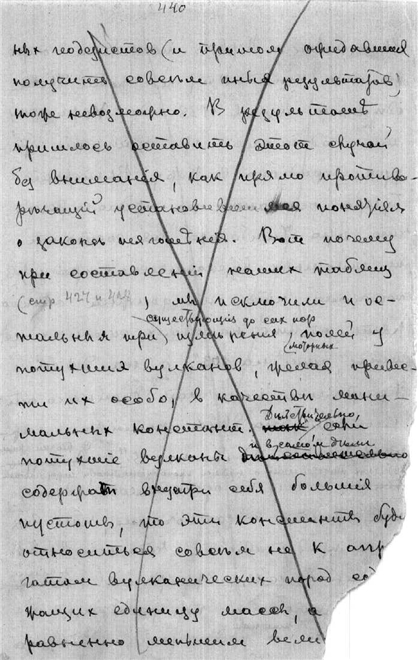 440
ных геодезистов (и притом ожидавших
получить совсем иные результаты)
тоже невозможно. В результате
пришлось оставить этот случай
без внимания, как прямо противо-
речащий установившимся понятиям
о законе тяготения. Вот почему
при составлении наших таблиц
(стр. 427 и 428), мы исключили и ос-
существующія до сих пор
тальныя три измерения, полей у
мощных
потухших вулканов, желая привес-
ти их особо, в качестве мини-
Действительно,
мальных констант. если
и в самом деле
потухшие вулканы
содержат внутри себя большия
пустоты, то эти константы буд
относиться совсем не к агр
гатам вулканических пород сод
жащих единицу массы, а
равненно меньшим вели